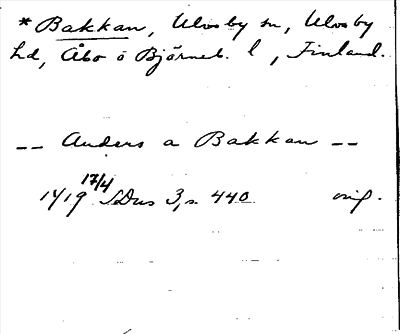 * Bakkan, Ulvsby sn, Ulvsby
hd, Åbo o Björneb. l, Finland.
-- Anders a Bakkan --
1419 17/4 SDns 3, s. 440 orig.